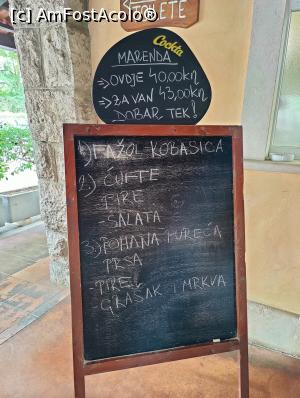 (c) AmFostAcolo®
TOILETE
Cockta
MARENDA
→OVDJE 40,00kn
→ZA VAN 43,00kn
DOBAR TEK!
1.) FAŽOL KOBASICA
2.) ĆUFTE
PIRE
SALATA
3.) POHANA PUREĆA
PRSA
PIRE
GRAŠAK I MRKVA